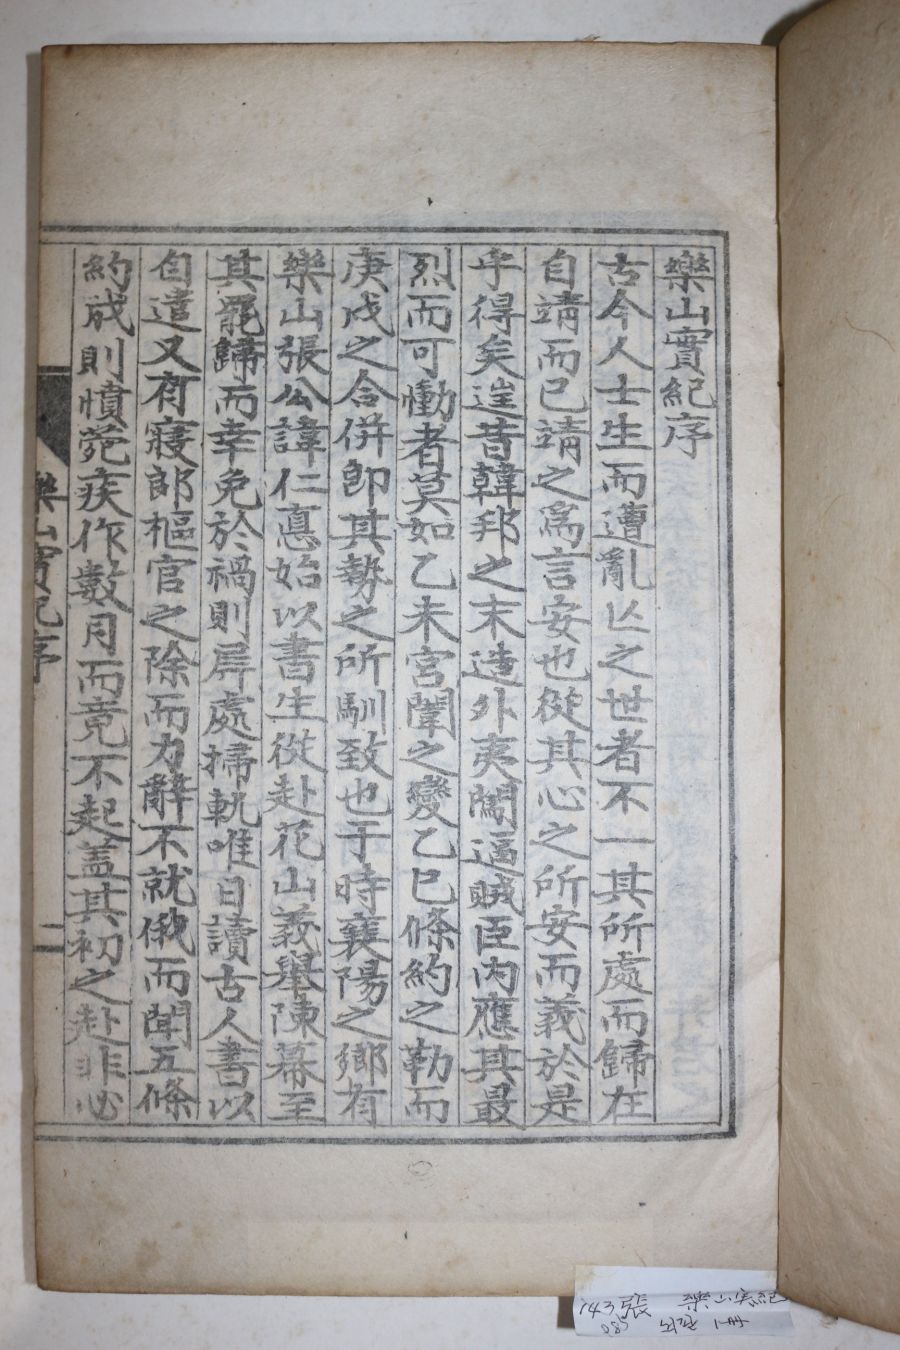 樂山實紀序
古今人士生而遭亂亾之世者不一其所處而歸在
自靖而已靖之爲言安也從其心之所安而義於是
乎得矣逞昔韓邦之末造外夷闖逼賊臣內應其最
烈而可慟者莫如乙未宮闈之變乙巳條約之勒而
庚戌之合併卽其勢之所馴致也于時襄陽之鄉有
樂山張公諱仁悳始以書生從赴花山義擧陳幕至
其罷歸而幸免於禍則屛處掃軌唯日讀古人書以
自遣又有寢郞樞官之除而力辭不就俄而聞五條
約成則憤菀疾作數月而竟不起盖其初之赴非必
樂山實紀序
一
143 張 樂山실紀
085
1冊